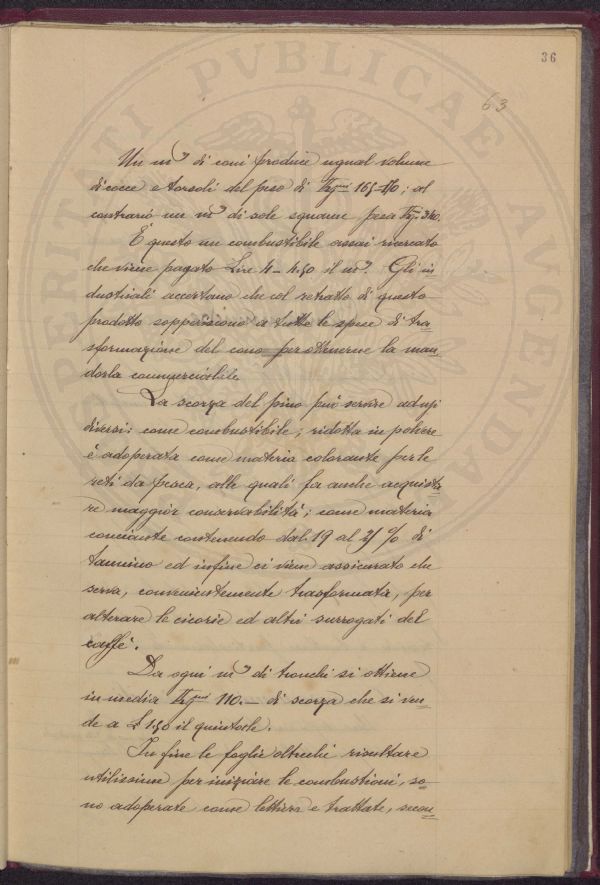 36
63
Un m³ di coni produce ugual volume
di cocce e torsoli del peso di Kg.mi 165-170; al
contrario un m³ di sole squame pesa Kg. 340.
È questo un combustibile assai ricercato
che viene pagato Lire 4 - 4.50 il m³. Gli in
dustriali accertano che col retratto di questo
prodotto sopperiscono a tutte le spese di tra
sformazione del cono per ottenerne la man
dorla commerciabile
La scorza del pino può servire ad usi
diversi: come combustibile; ridotta in polvere
è adoperata come materia colorante per le
reti da pesca, alle quali fa anche acquista
re maggior conservabilità; come materia
conciante contenendo dal 19 al 21 % di
tannino ed infine ci viene assicurato che
serva, convenientemente trasformata, per
alterare le cicorie ed altri surrogati del
caffè.
Da ogni m³ di tronchi si ottiene
in media Kg.mi 110.- di scorza che si ven
de a £ 1.50 il quintale.
In fine le foglie oltrechè risultare
utilissime per iniziare le combustioni, so
no adoperate come lettiera e trattate, secon
PERITATI PVBLICAE AVGENDAE